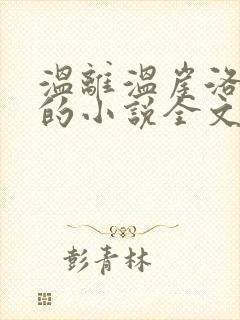 溫離溫崖洛
的小說全文
彭青林